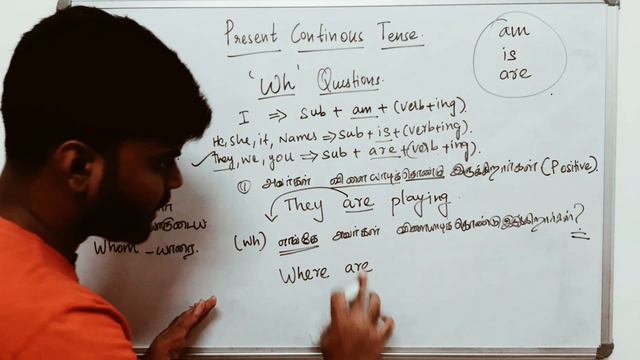 Present Continous Tense.
am
is
are
'Wh' Questions.
I ⇒ sub + am + (verb+ing).
He, she, it, Names ⇒ sub + is + (verb+ing).
They, we, you ⇒ sub + are + (verb+ing).
① அவர்கள் விளையாடிக்கொண்டு இருக்கிறார்கள் (Positive).
They are playing.
Whom - யாரை.
(Wh) எங்கே அவர்கள் விளையாடிக்கொண்டு இருக்கிறார்கள்?
Where are